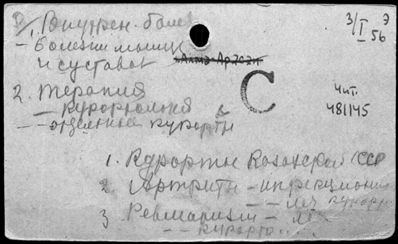 3/I 56 Э
В/, Внутрен. болез
- болезни мышц
и суставов
Алма-Арасан
С
2. терапия
- курортология
-- отдельные курорты
чит.
481145
1. Курорты Казахской ССР
2. Артриты - инфекционн
-- леч. курорт
3 Ревматизм - леч
-- курорт